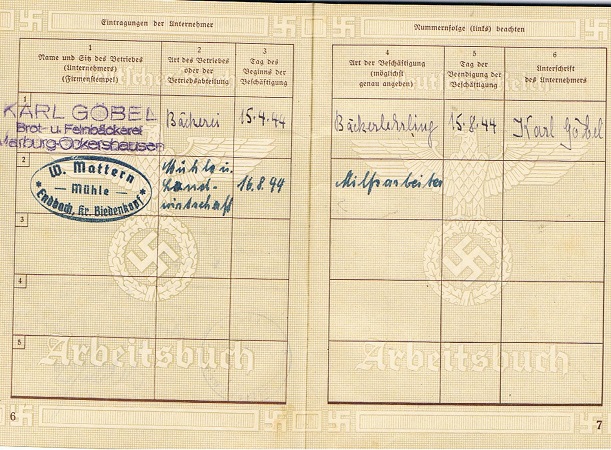 Eintragungen der Unternehmer
1
Name und Sitz des Betriebes
(Unternehmers)
(Firmenstempel)
2
Art des Betriebes
oder der
Betriebsabteilung
3
Tag des
Beginns der
Beschäftigung
1
KARL GÖBEL
Brot- u. Feinbäckerei
Marburg-Ockershausen
Bäckerei
15.4.44
2
W. Mattern
— Mühle —
Endbach, Kr. Biedenkopf
Mühle u.
Land-
wirtschaft
16.8.44
3
4
5
Arbeitsbuch
6
Nummernfolge (links) beachten
4
Art der Beschäftigung
(möglichst
genau angeben)
5
Tag der
Beendigung der
Beschäftigung
6
Unterschrift
des Unternehmers
Bäckerlehrling
15.8.44
Karl Göbel
Hilfsarbeiter
Arbeitsbuch
7